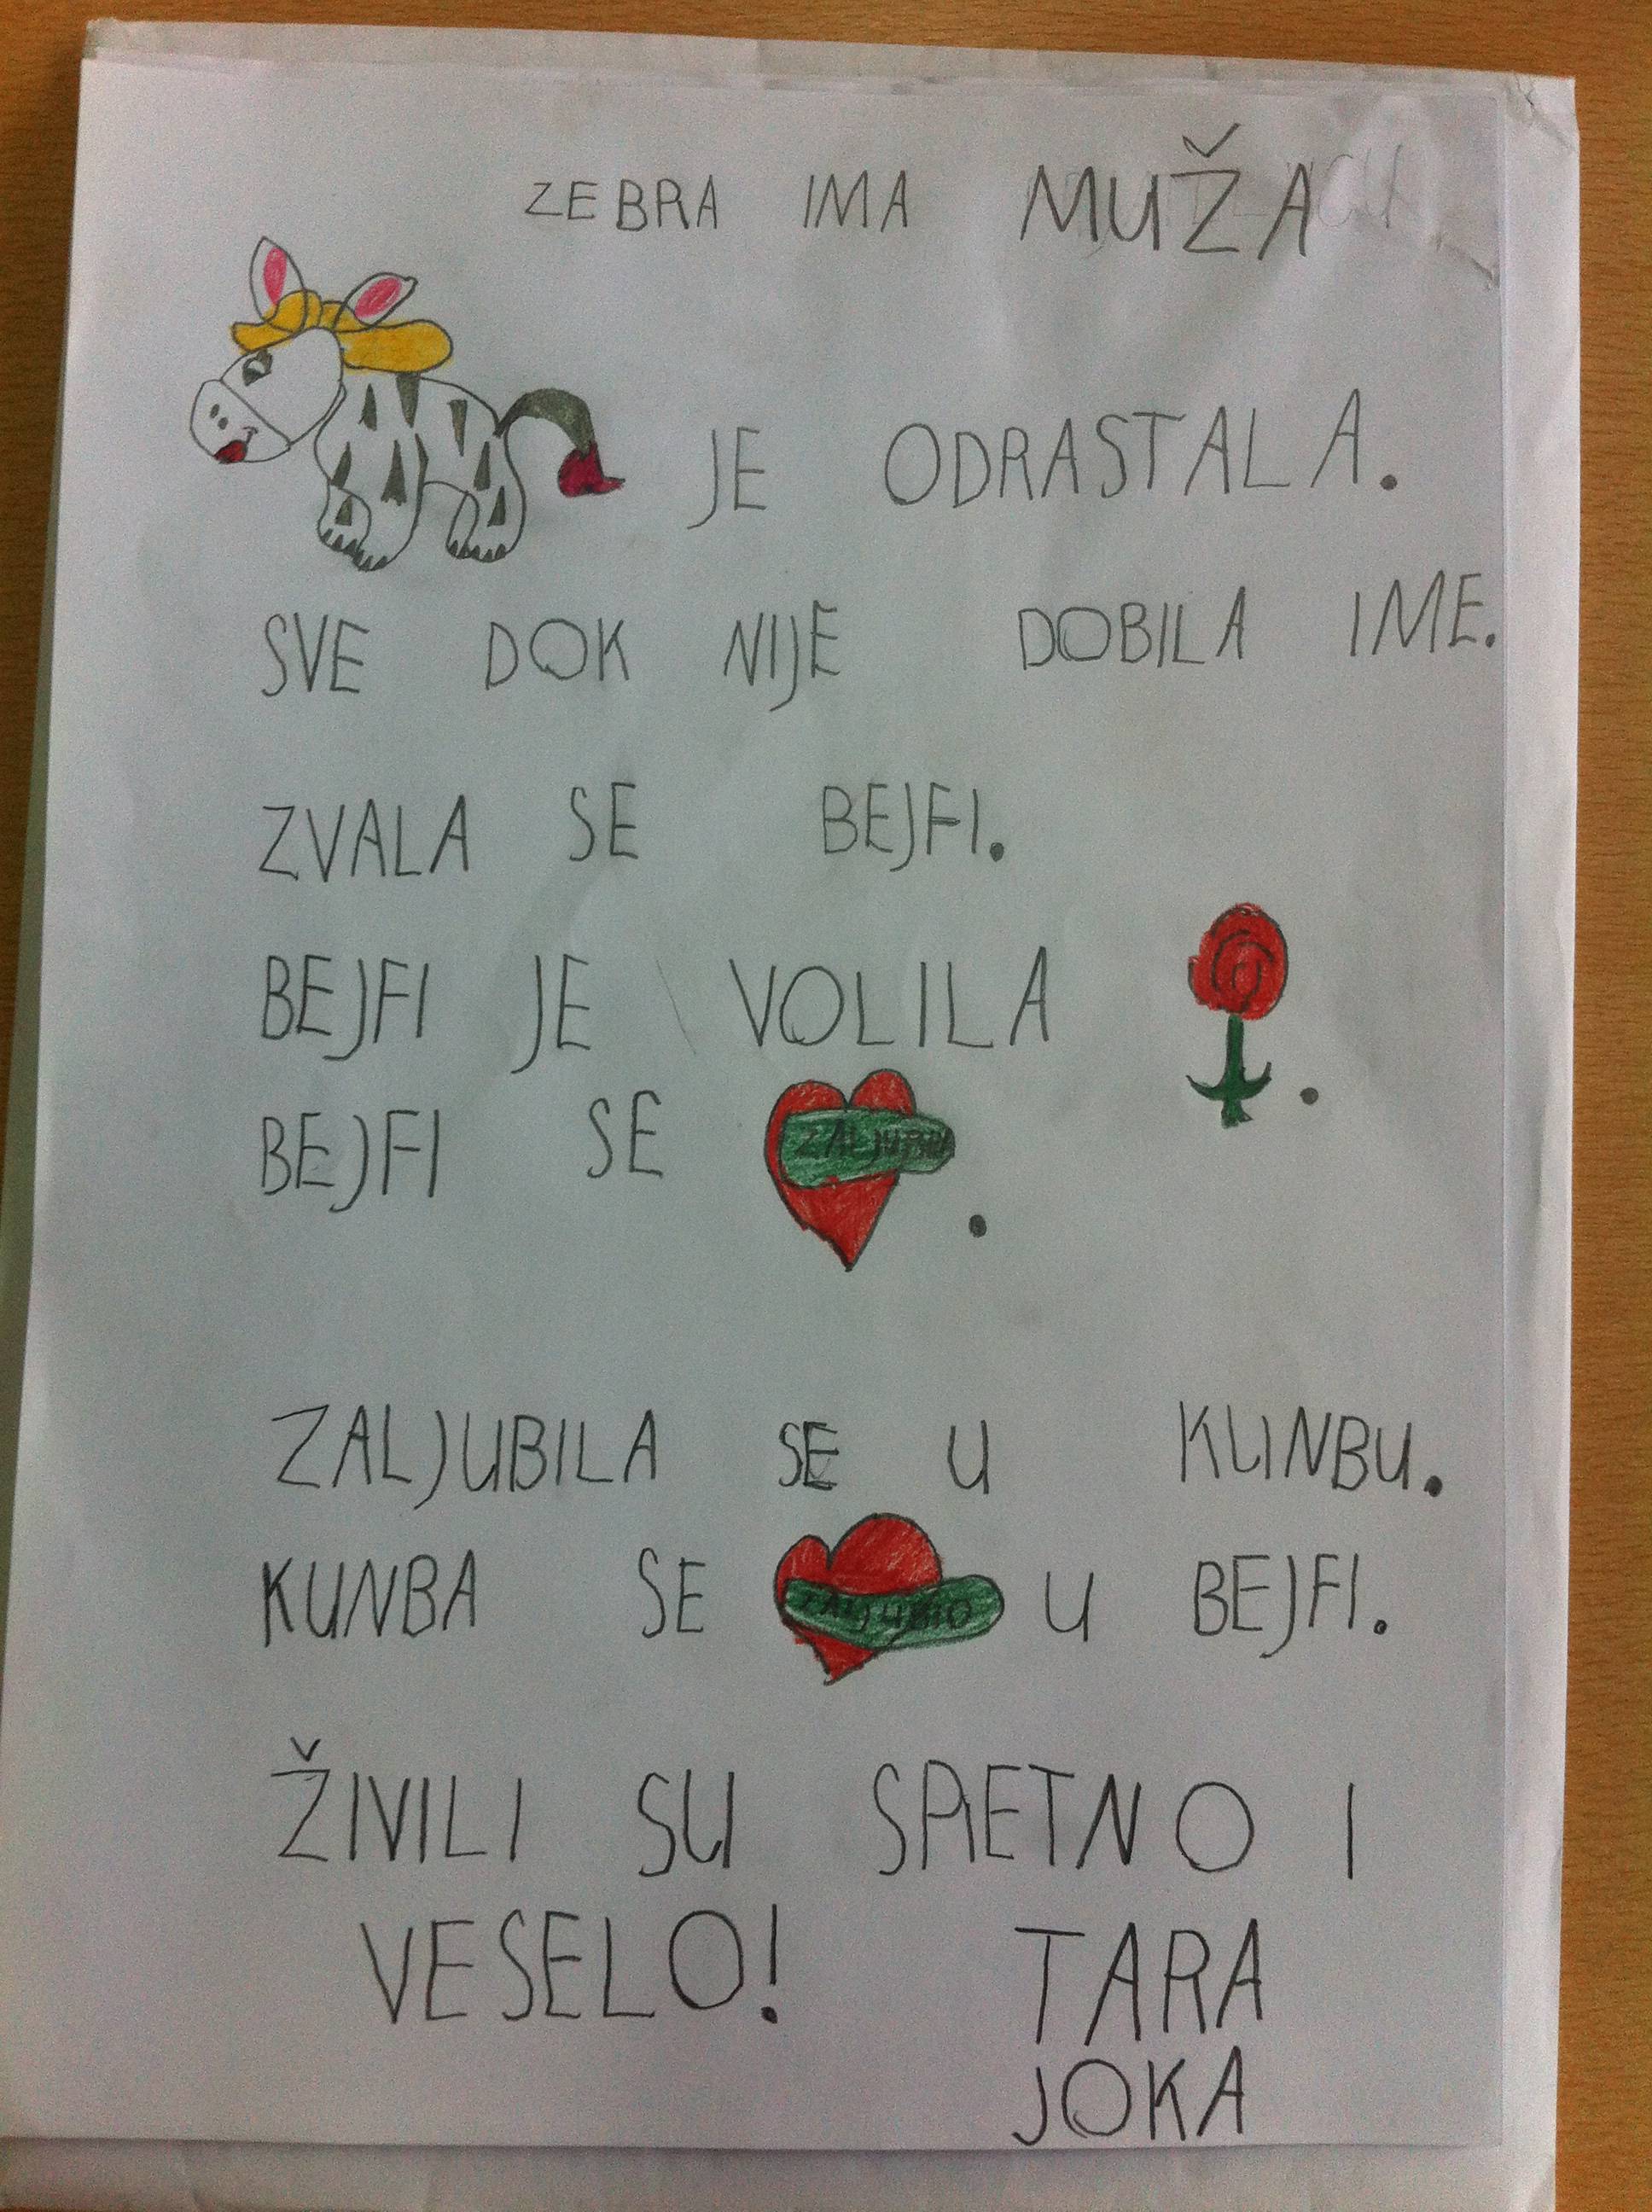 ZEBRA IMA MUŽA
JE ODRASTALA.
SVE DOK NIJE DOBILA IME.
ZVALA SE BEJFI.
BEJFI JE VOLILA
.
BEJFI SE ZALJUBILA.
ZALJUBILA SE U KUNBU.
KUNBA SE ZALJUBIO U BEJFI.
ŽIVILI SU SRETNO I
VESELO! TARA
JOKA